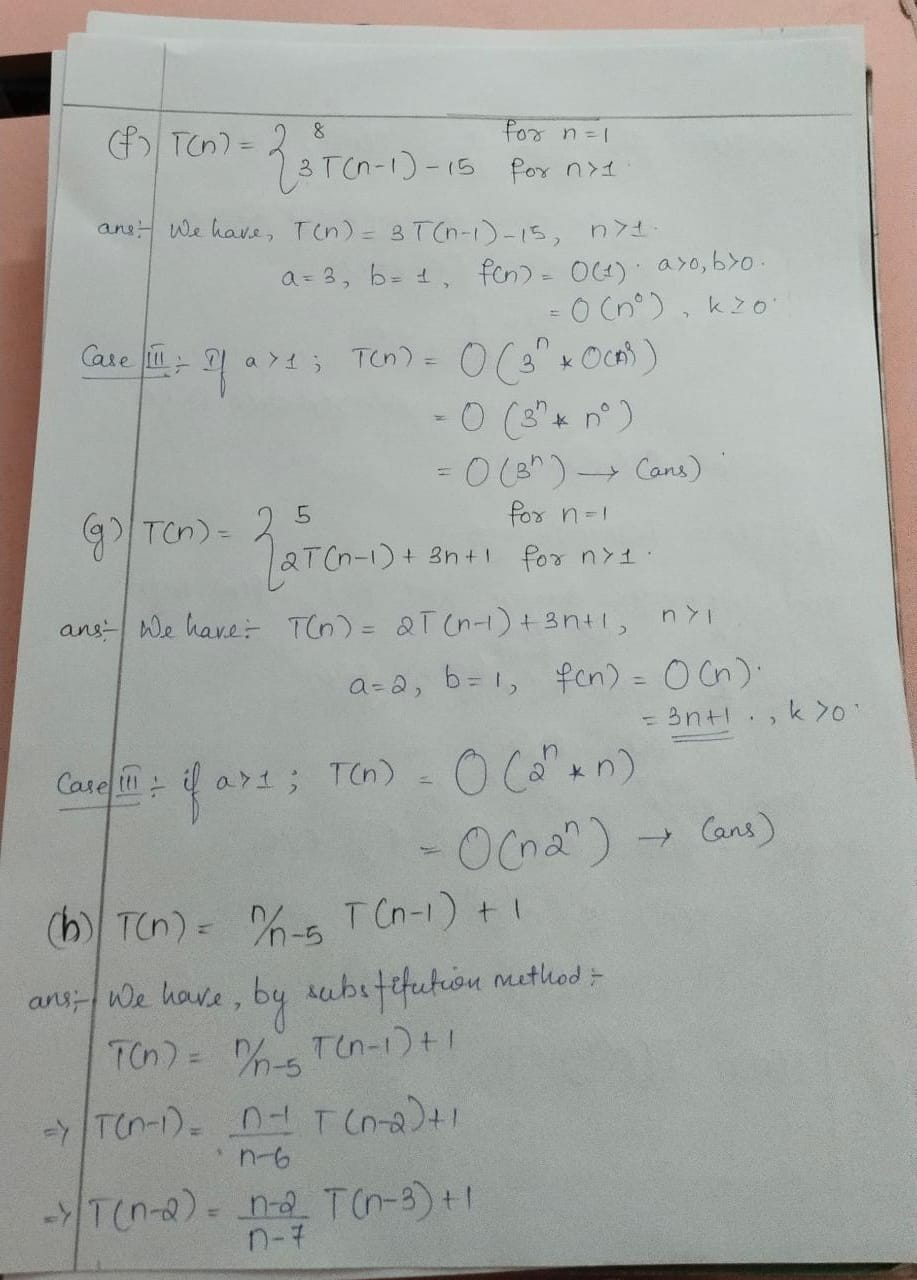 (f) T(n) = { 8 for n=1
3T(n-1)-15 for n>1
ans:- We have, T(n) = 3T(n-1)-15, n>1.
a=3, b=1, f(n) = O(1). a>0, b>0.
= O(n⁰), k≥0.
Case III:- If a>1; T(n) = O(3ⁿ *
= O(3ⁿ * n⁰)
= O(3ⁿ) → (ans)
(g) T(n) = { 5 for n=1
2T(n-1)+3n+1 for n>1.
ans:- We have:- T(n) = 2T(n-1)+3n+1, n>1
a=2, b=1, f(n) = O(n).
= 3n+1 ., k>0.
Case III:- if a>1; T(n) = O(2ⁿ * n)
= O(n2ⁿ) → (ans)
(h) T(n) = n/n-5 T(n-1) + 1
ans:- We have, by substitution method:-
T(n) = n/n-5 T(n-1)+1
=> T(n-1) = n-1/n-6 T(n-2)+1
=> T(n-2) = n-2/n-7 T(n-3)+1